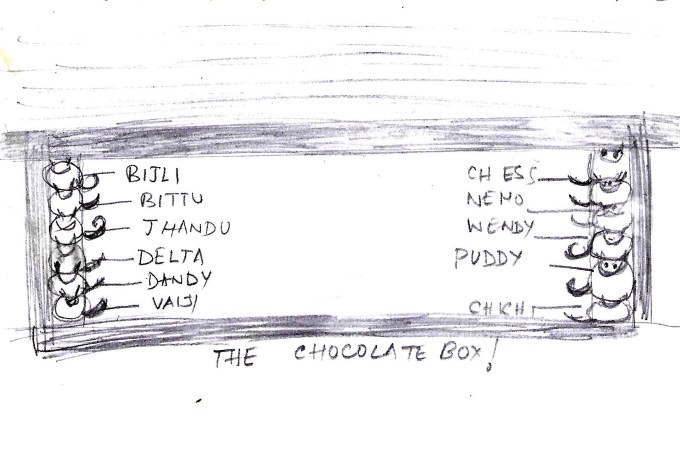 BIJLI
BITTU
JHANDU
DELTA
DANDY
VAIJI
CHESS
NEMO
WENDY
PUDDY
CHICHI
THE CHOCOLATE BOX!